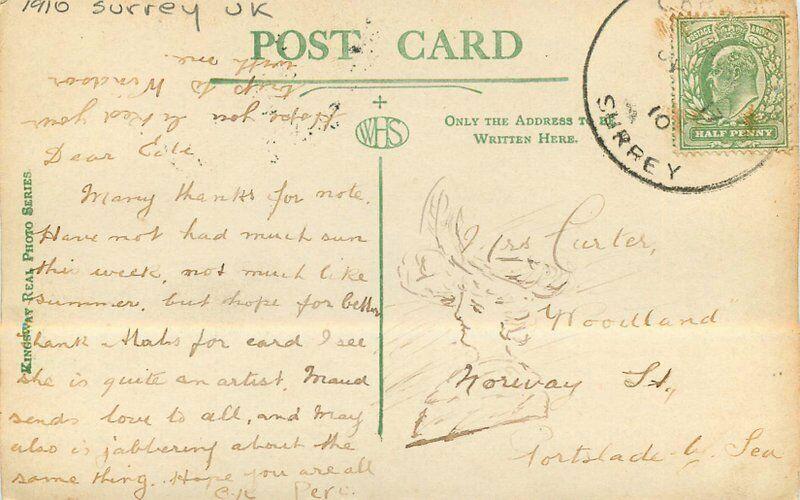 1910 Surrey UK
POST CARD
Hope you liked your
trip to Windsor
with me.
WHS
ONLY THE ADDRESS TO BE
WRITTEN HERE.
SURREY
10
POSTAGE
HALF PENNY
KINGSWAY REAL PHOTO SERIES.
Dear Edie
Many thanks for note.
Have not had much sun
this week, not much like
summer, but hope for better
thank Mabs for card I see
she is quite an artist. Maud
sends love to all, and May
also is jabbering about the
same thing. Hope you are all
O.K. Perc.
Mrs Carter,
"Woodland"
Norway St,
Portslade by Sea